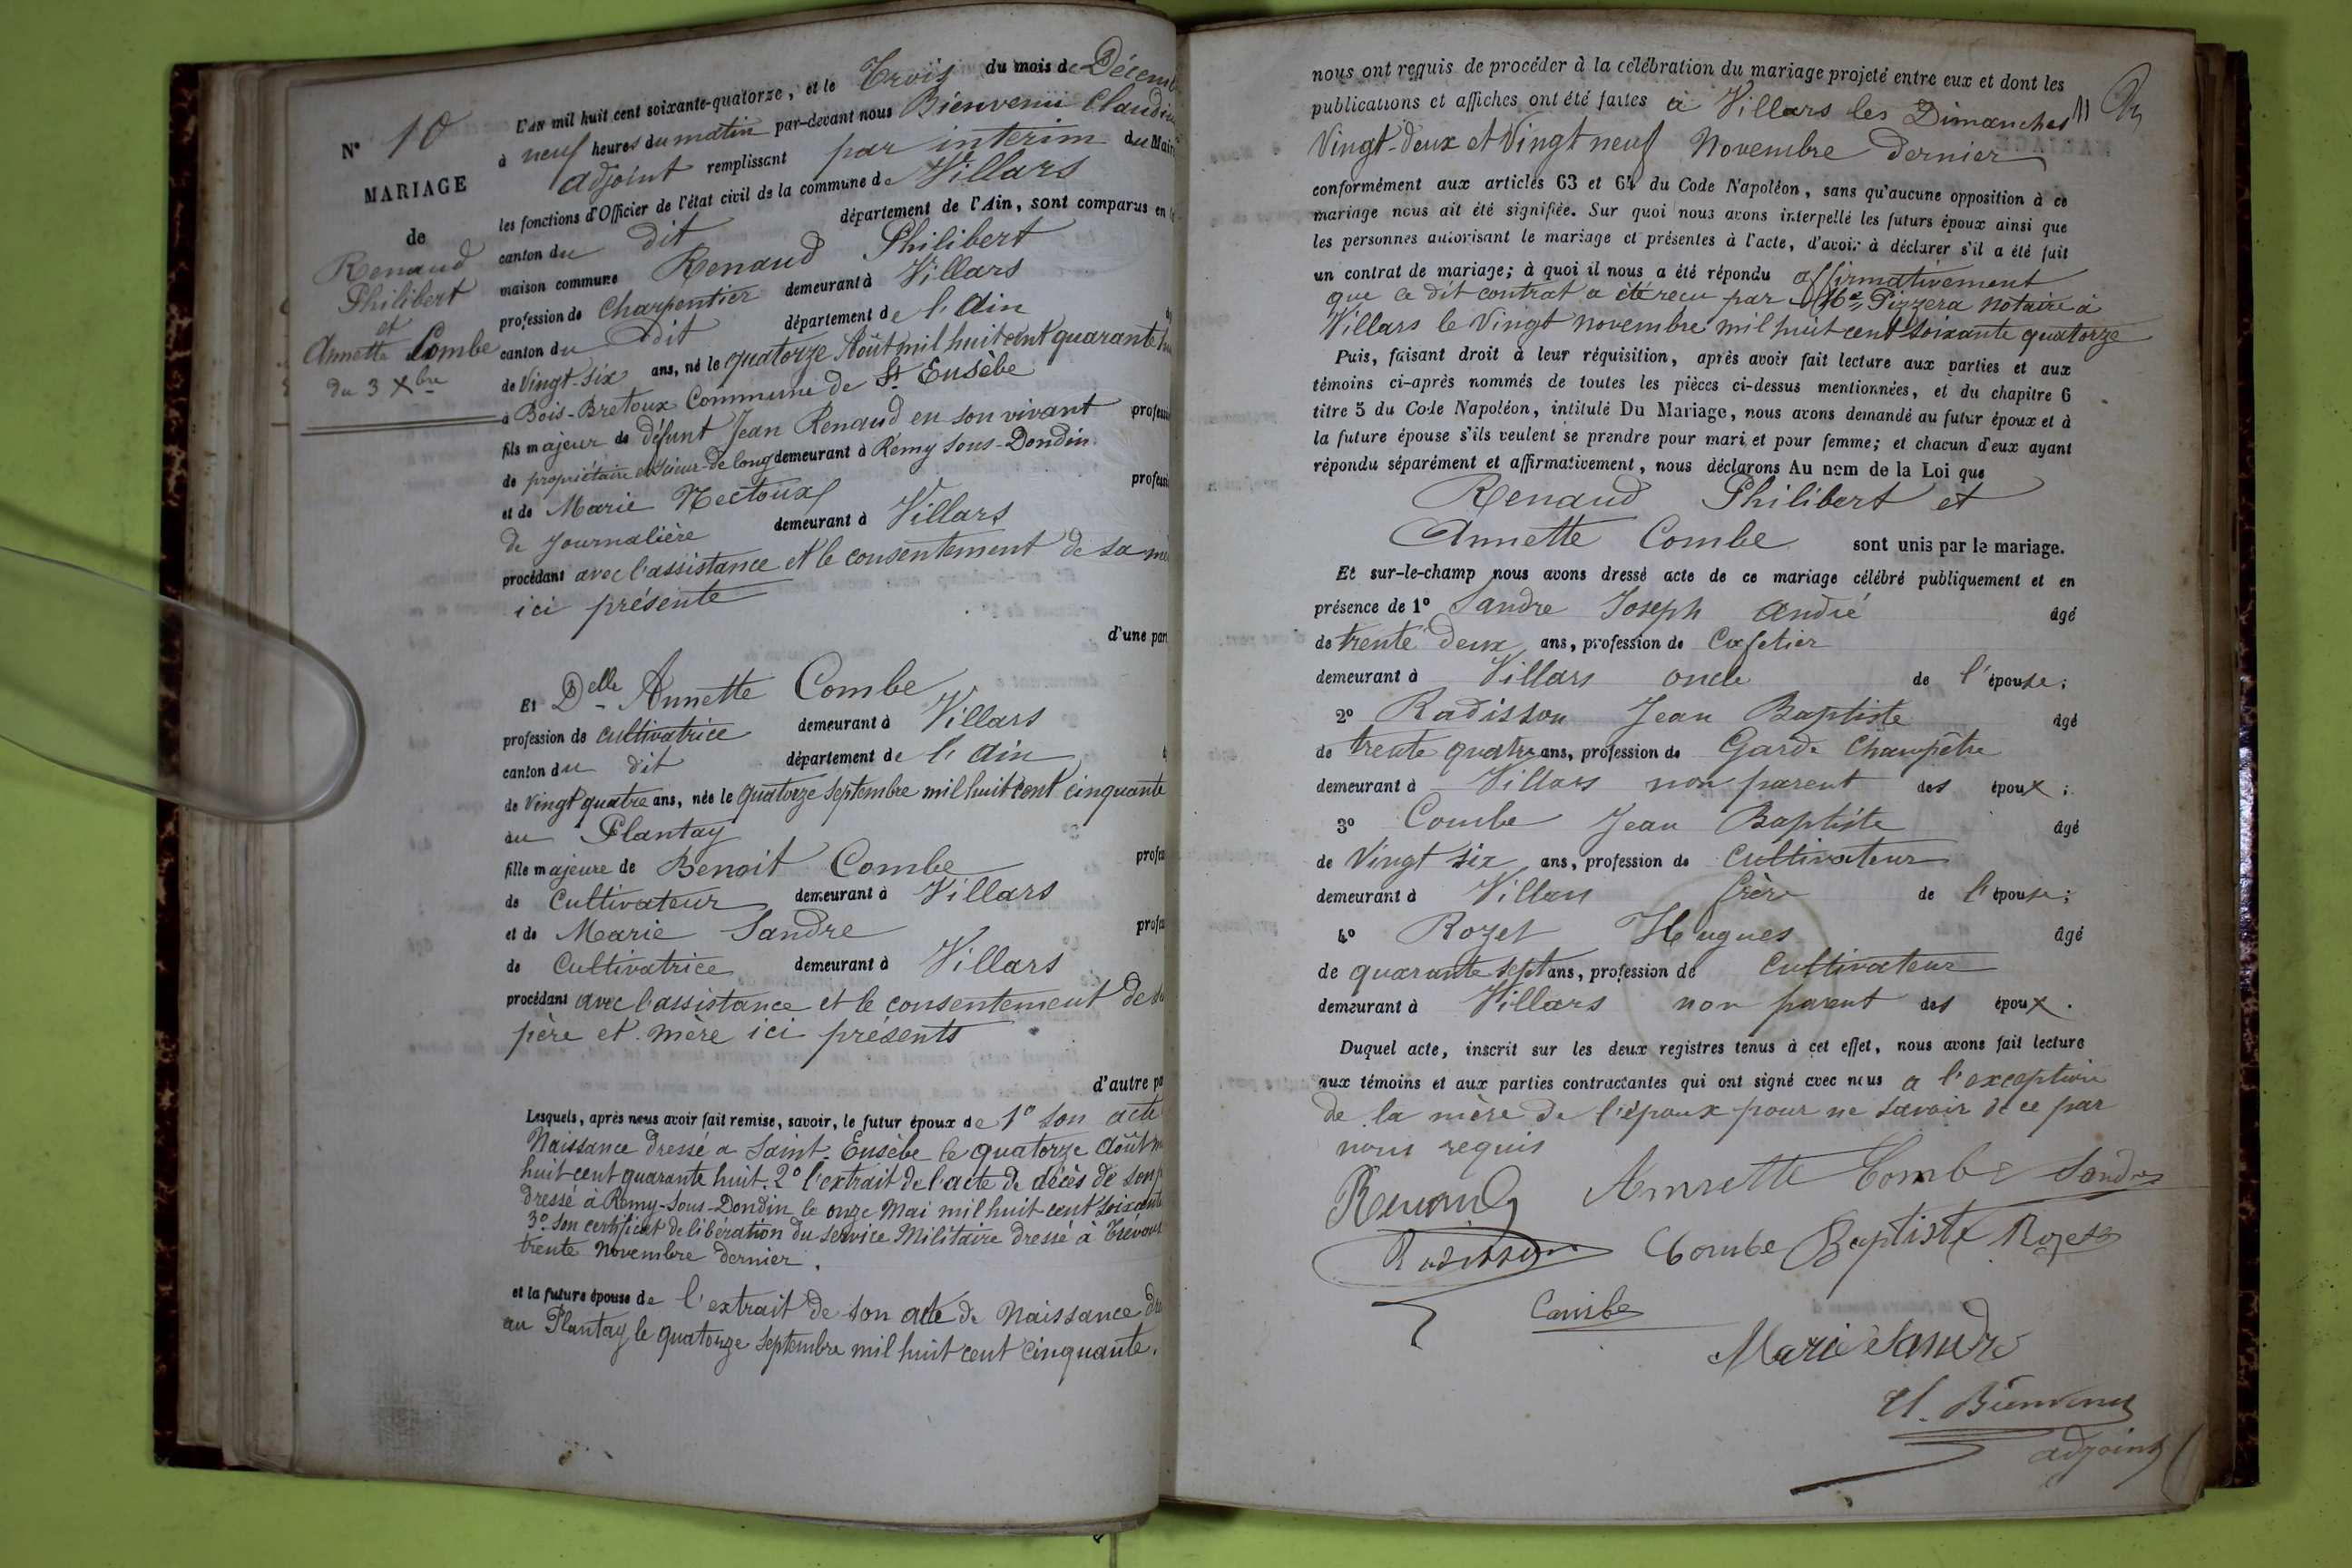 N° 10
MARIAGE
de
Renaud
Philibert
et
Annette Combe
du 3 Xbre
L'an mil huit cent soixante-quatorze, et le Trois du mois de Décemb
à neuf heures du matin par-devant nous Bienvenu Claudius
adjoint remplissant par interim du Mair
les fonctions d'Officier de l'état civil de la commune de Villars
canton du dit département de l'Ain, sont comparus en
maison commune Renaud Philibert
profession de Charpentier demeurant à Villars
canton du dit département de l'Ain
de Vingt-six ans, né le quatorze Août mil huit cent quarante hu
à Bois-Bretoux Commune de St Eusèbe
fils majeur de défunt Jean Renaud en son vivant professi
de propriétaire et scieur-de long demeurant à Remy sous-Dondin
et de Marie Nectoux professi
de Journalière demeurant à Villars
procédant avec l'assistance et le consentement de sa mè
ici présente
d'une par
Et Delle Annette Combe
profession de cultivatrice demeurant à Villars
canton du dit département de l'Ain
de Vingt quatre ans, née le quatorze septembre mil huit cent cinquante
au Plantay
fille majeure de Benoit Combe profes
de Cultivateur demeurant à Villars
et de Marie Sandre profes
de Cultivatrice demeurant à Villars
procédant avec l'assistance et le consentement de
père et mère ici présents
d'autre pa
Lesquels, après nous avoir fait remise, savoir, le futur époux de 1° son acte
Naissance dressé a Saint-Eusèbe le quatorze Août m
huit cent quarante huit. 2° l'extrait de l'acte de décès de son p
dressé à Remy-Sous-Dondin le onze Mai mil huit cent soixante
3° son certificat de libération du service Militaire dressé à Trévoux
trente Novembre dernier.
et la future épouse de l'extrait de son acte de Naissance dre
au Plantay le quatorze septembre mil huit cent cinquante.
nous ont requis de procéder à la célébration du mariage projeté entre eux et dont les
publications et affiches ont été faites à Villars les Dimanches
Vingt-deux et Vingt neuf Novembre dernier
conformément aux articles 63 et 64 du Code Napoléon, sans qu'aucune opposition à ce
mariage nous ait été signifiée. Sur quoi nous avons interpellé les futurs époux ainsi que
les personnes autorisant le mariage et présentes à l'acte, d'avoir à déclarer s'il a été fait
un contrat de mariage; à quoi il nous a été répondu affirmativement
que ce dit contrat a été reçu par Me Pizzera notaire à
Villars le Vingt novembre mil huit cent soixante quatorze
Puis, faisant droit à leur réquisition, après avoir fait lecture aux parties et aux
témoins ci-après nommés de toutes les pièces ci-dessus mentionnées, et du chapitre 6
titre 5 du Code Napoléon, intitulé Du Mariage, nous avons demandé au futur époux et à
la future épouse s'ils veulent se prendre pour mari et pour femme; et chacun d'eux ayant
répondu séparément et affirmativement, nous déclarons Au nom de la Loi que
Renaud Philibert et
Annette Combe sont unis par le mariage.
Et sur-le-champ nous avons dressé acte de ce mariage célébré publiquement et en
présence de 1° Sandre Joseph André âgé
de trente deux ans, profession de Cafetier
demeurant à Villars oncle de l'épouse;
2° Radisson Jean Baptiste âgé
de trente quatre ans, profession de Garde Champêtre
demeurant à Villars non parent des époux;
3° Combe Jean Baptiste âgé
de Vingt six ans, profession de Cultivateur
demeurant à Villars frère de l'épouse;
4° Rozet Hugues âgé
de quarante sept ans, profession de Cultivateur
demeurant à Villars non parent des époux.
Duquel acte, inscrit sur les deux registres tenus à cet effet, nous avons fait lecture
aux témoins et aux parties contractantes qui ont signé avec nous a l'exception
de la mère de l'époux pour ne savoir de ce par
nous requis
Renaud Annette Combe Sandre
Radisson Combe Baptiste Rozet
Combe
Marie Sandre
Cl. Bienvenu
adjoint